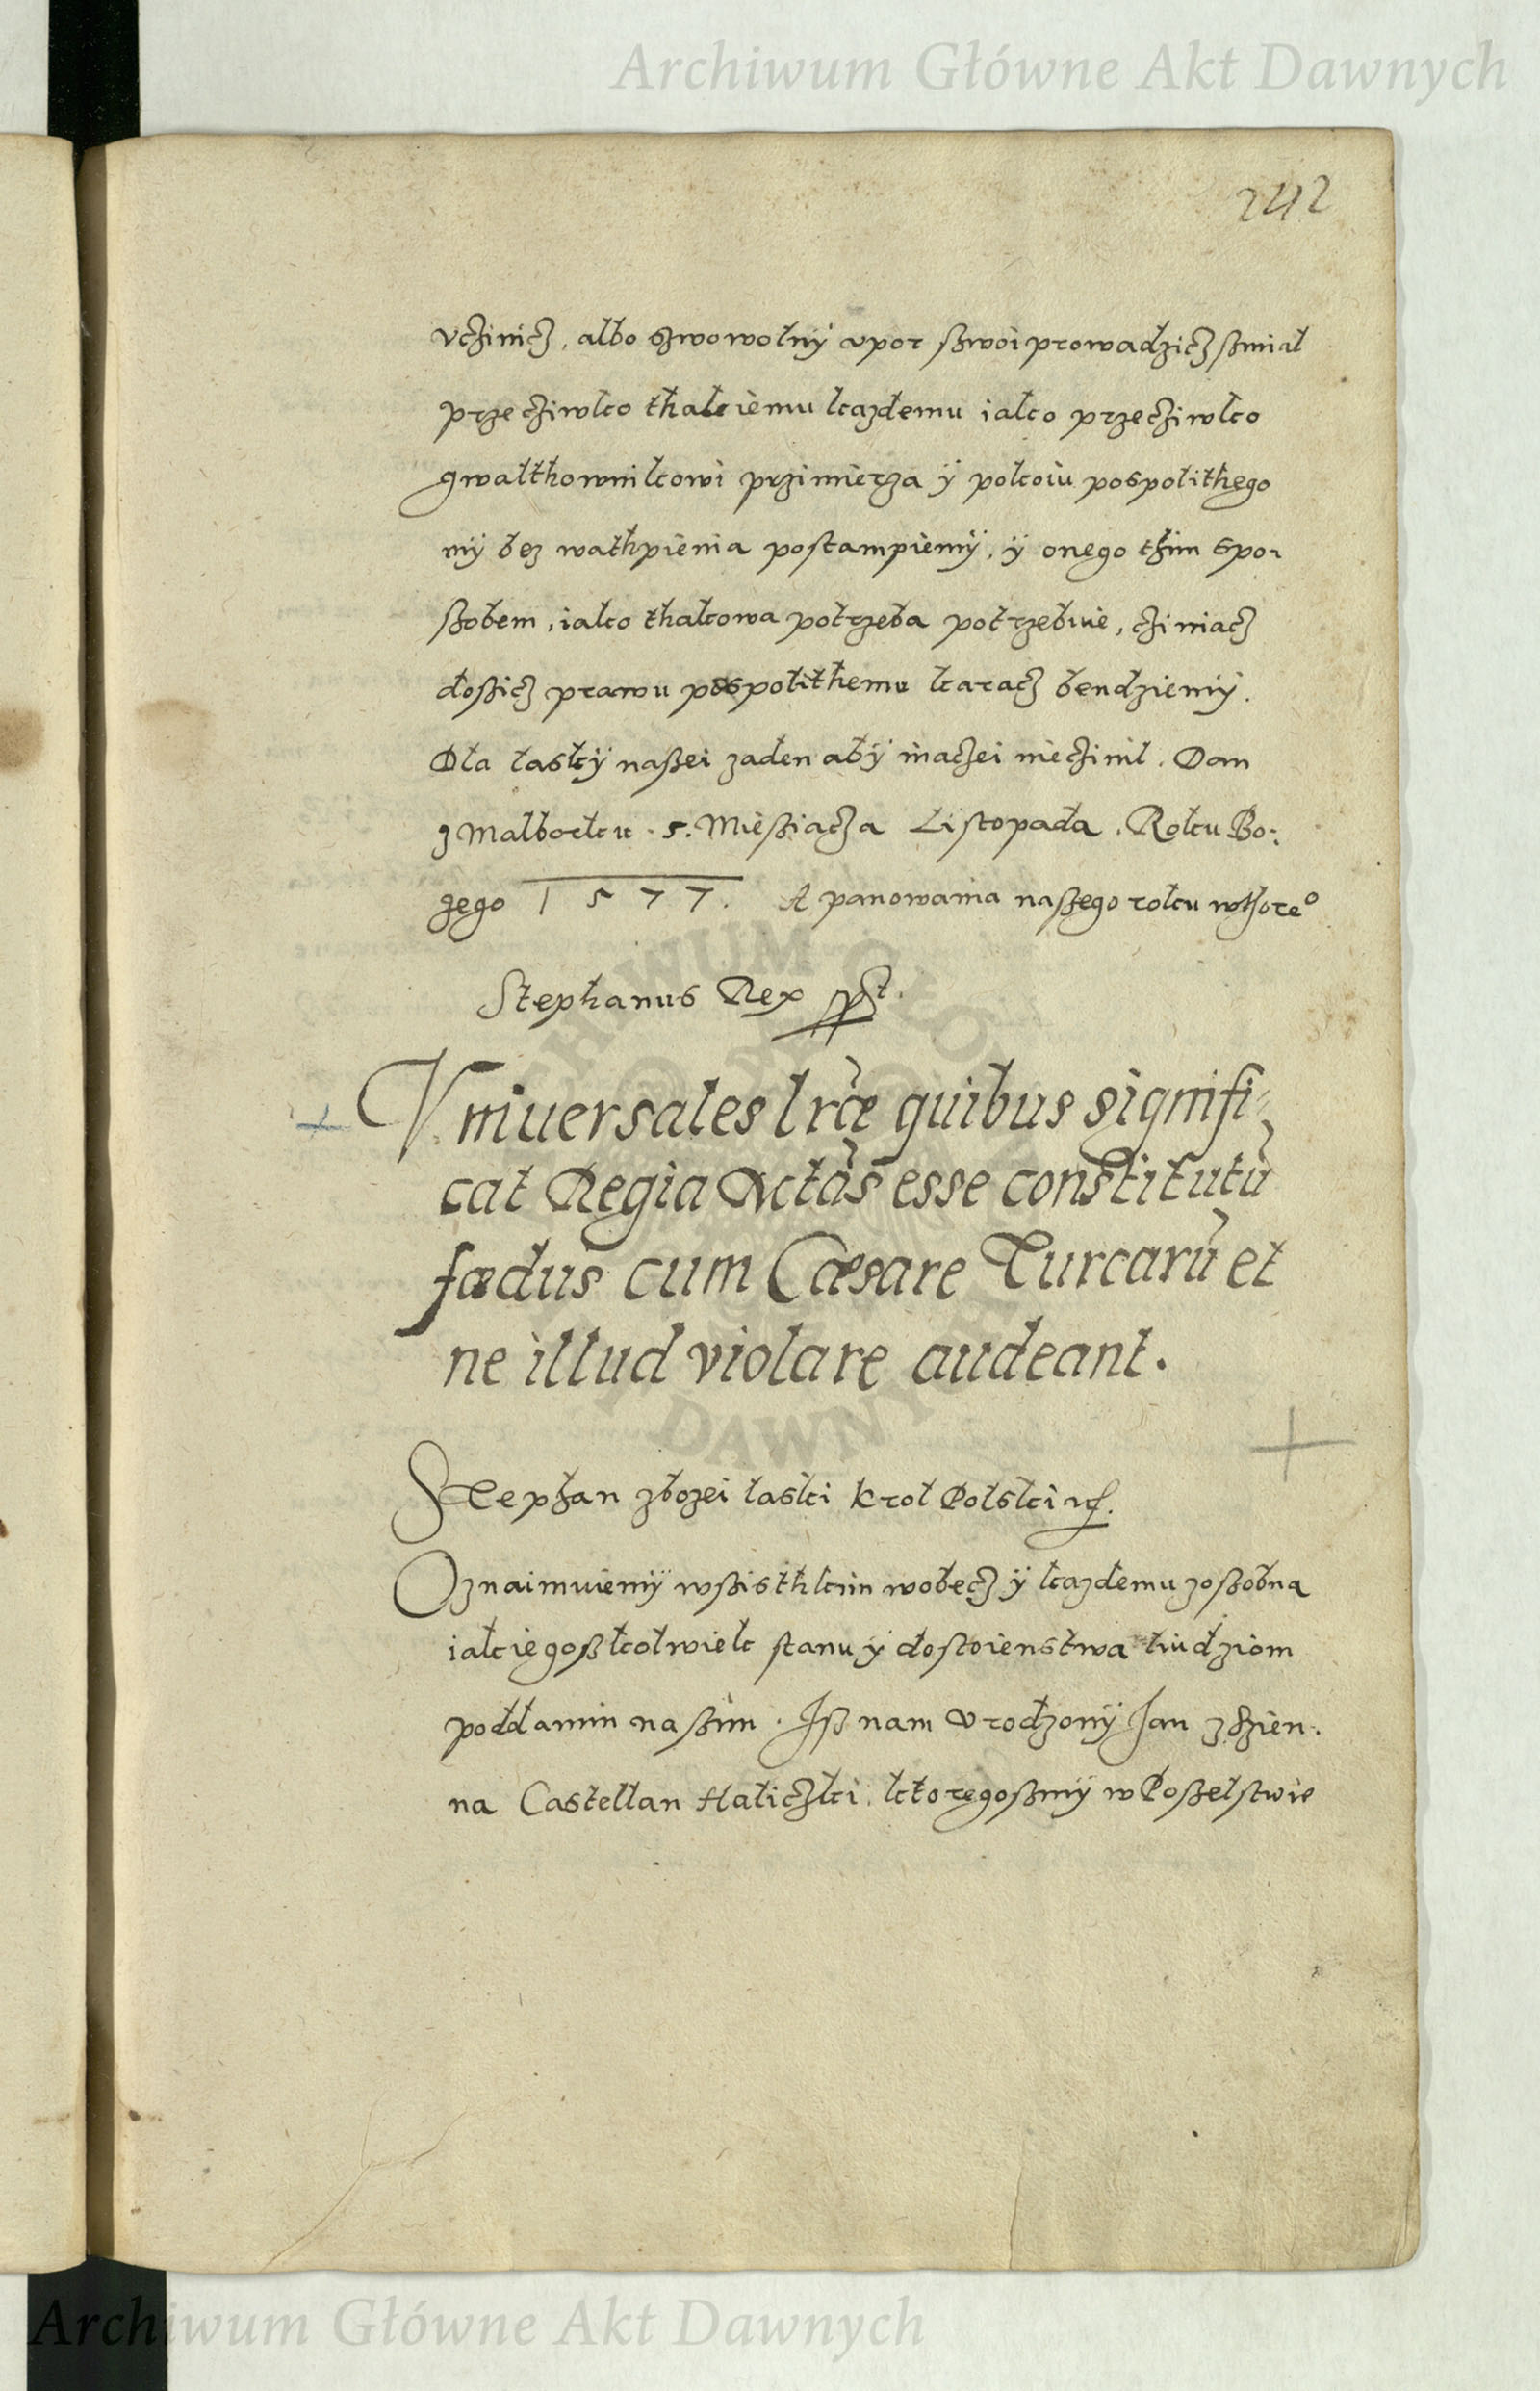 Archiwum Główne Akt Dawnych
242
vcżinicz, albo szwowolnÿ vpor szwoi prowadzicz szmial
przecżiwko thakiemu kazdemu iako przecżiwko
gwalthownikowi przimierza ÿ pokoiu pospolithego
mÿ bez wathpienia postampiemÿ, ÿ onego thim spo-
szobem, iako thakowa potrzeba potrzebuie, cżiniacz
doszicz prawu pospolithemu karacz bendziemÿ.
Dla laskÿ naszei zaden abÿ inaczei niecżinil. Dan
z Malborku. 5. Miesziacza Listopada. Roku Bo:
zego 1577. A panowania naszego roku wthore⁰
Stephanus Rex sspt.
Vniuersales lr̀æ quibus signifi-
cat Regia Mctàs esse constitutù
fœdus cum Cæsare Turcarù et
ne illud violare audeant.
Stephan z bozei laski Krol Polski etc.
Oznaimuiemÿ wszisthkim wobecz ÿ kazdemu zoszobna
iakiegoszkolwiek stanu ÿ dostoienstwa liudziom
poddanim naszim. Isz nam Vrodzonÿ Jan z Szien:
na Castellan Haliczki, ktoregoszmÿ w Poszelstwie
ARCHIWUM GŁÓWNE AKT DAWNYCH
Archiwum Główne Akt Dawnych